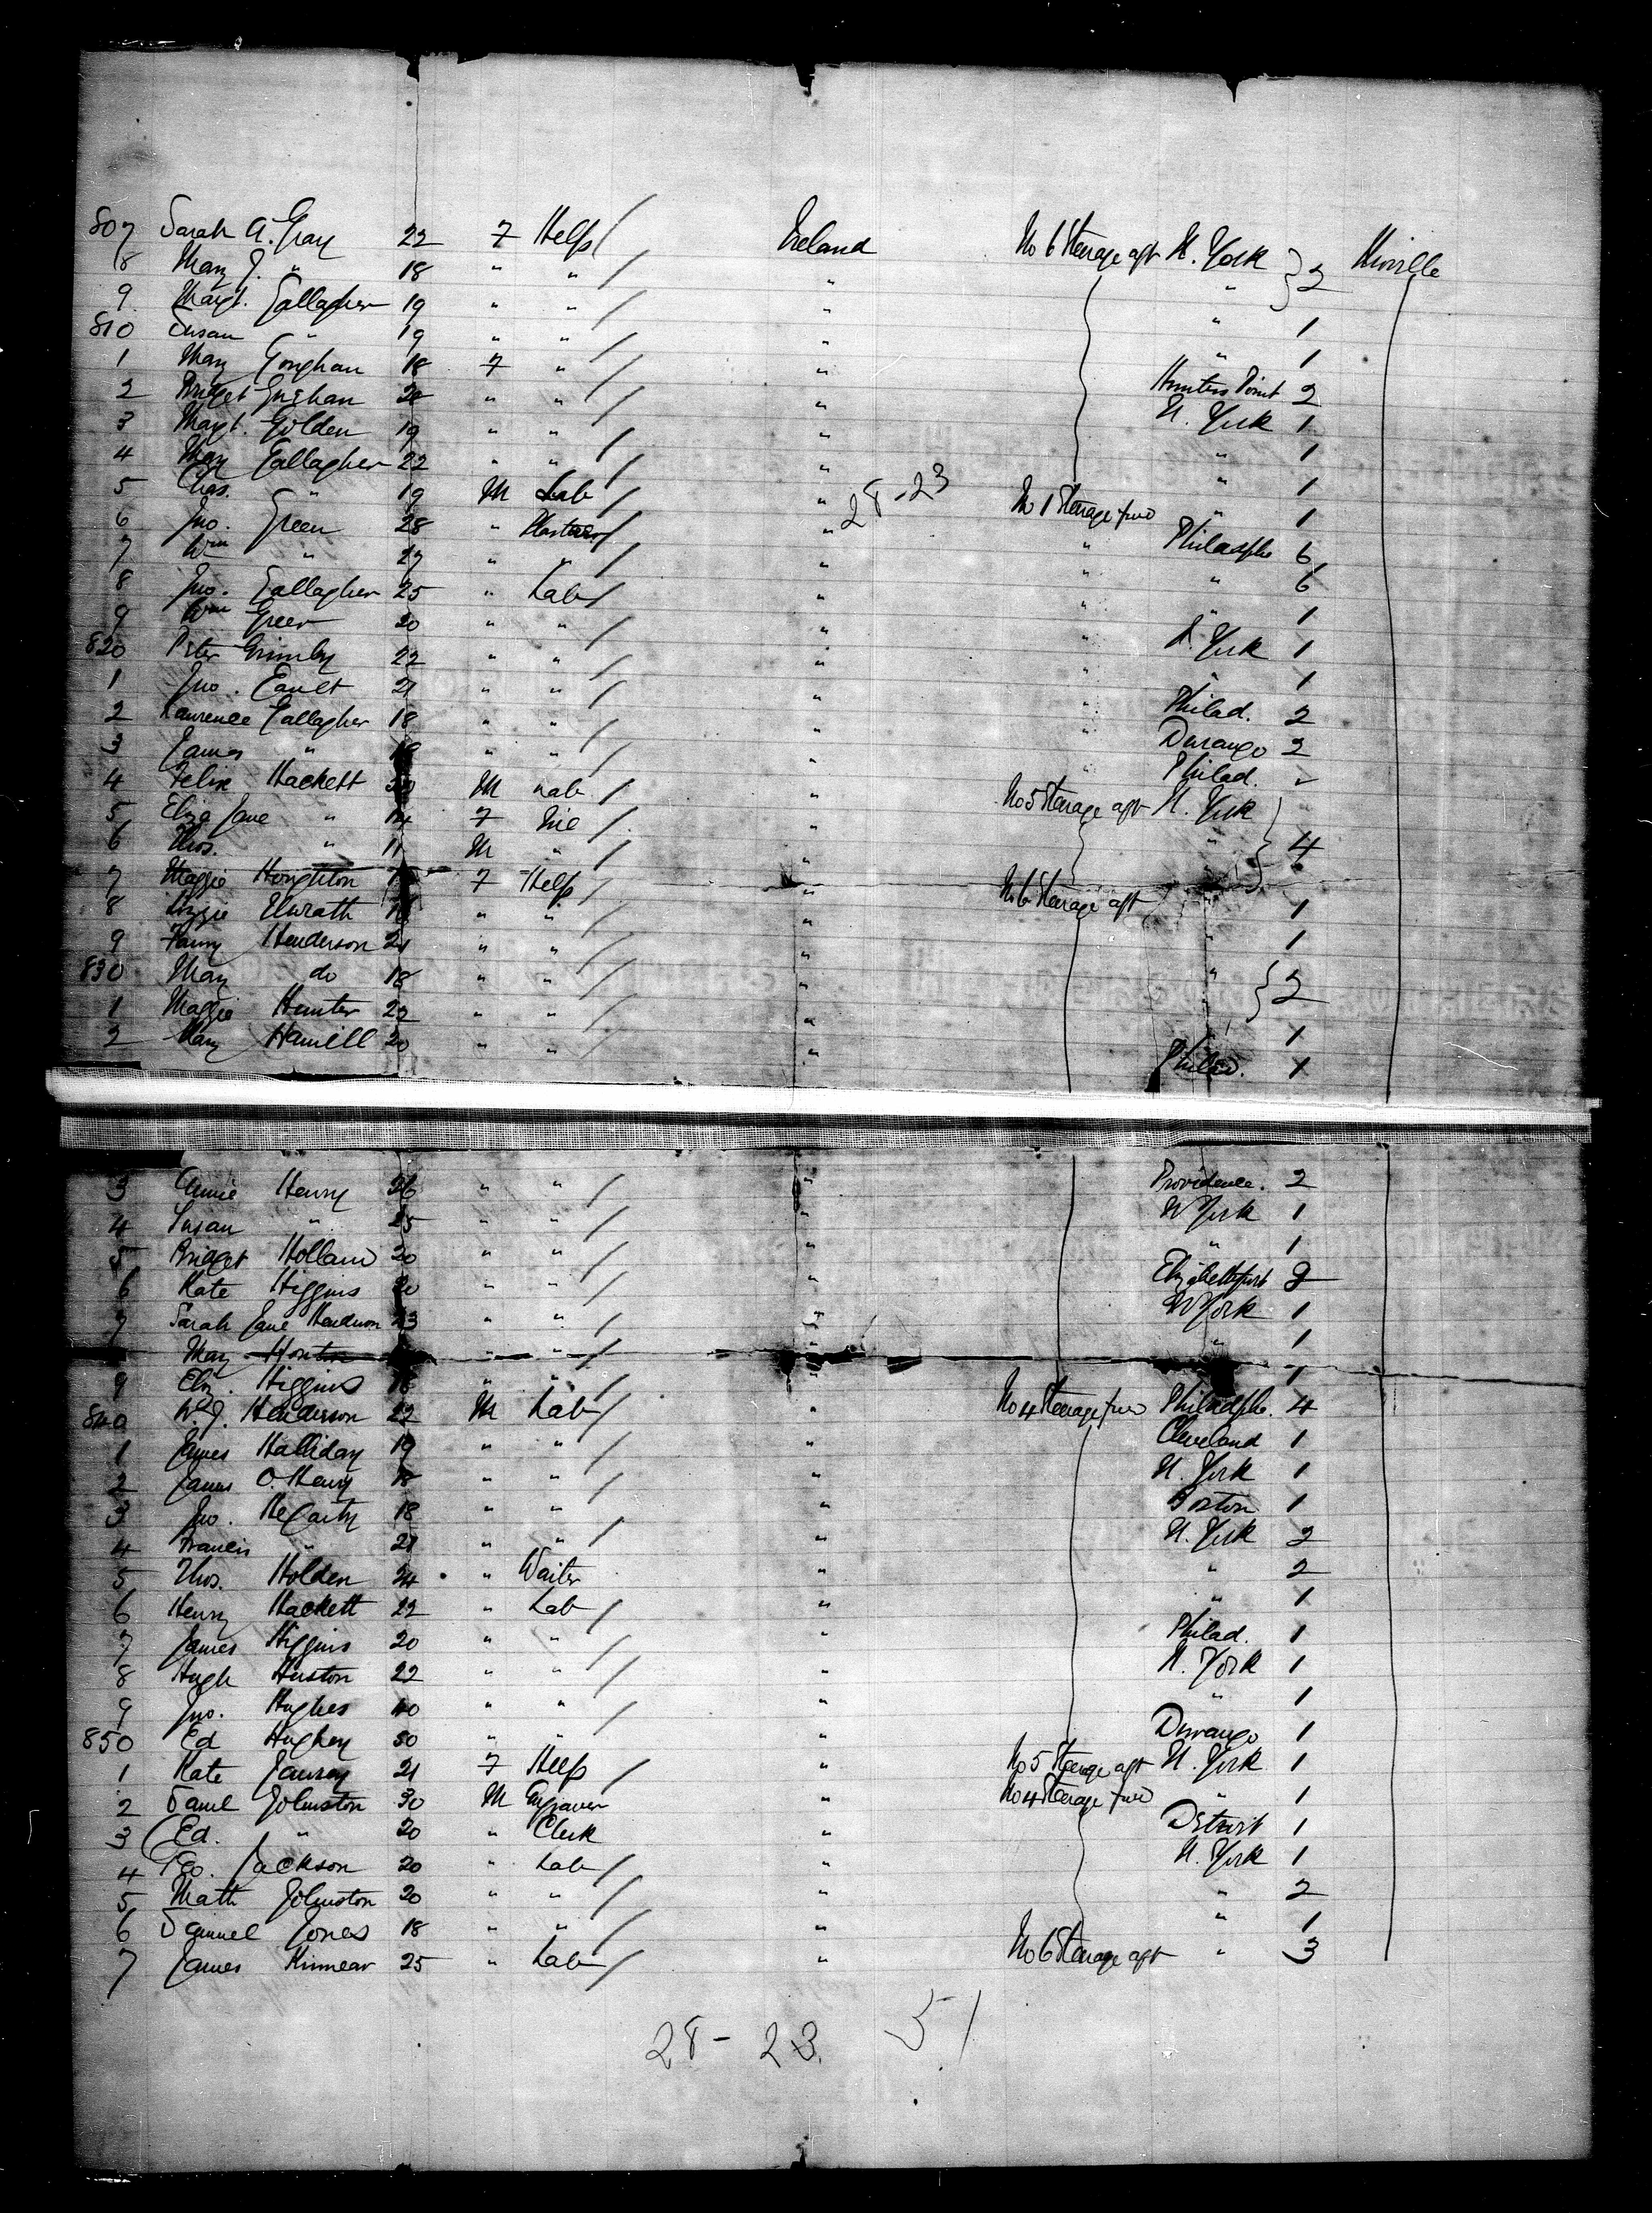 807 Sarah A. Gray 22 7 Help / Ireland No 6 Steerage aft N. York } 2 Moville
8 Mary J. " 18 " " / " "
9 Margt. Gallagher 19 " " / " " 1
810 Susan " 19 " " / " " 1
1 Mary Gonghan 18 7 " / " Hunters Point 2
2 Bridget 20 " " / " N. York 1
3 Margt. Golden 19 " " / " " 1
4 Mary Gallagher 22 " " / " " 1
5 Chas. " 19 M Lab / " 28-23 No 1 Steerage fwd " 1
6 Jno. Green 28 " Plasterer / " " Philadpha 6
7 Wm " 27 " " / " " " 6
8 Jno. Gallagher 25 " Lab / " " " 1
9 Wm Greer 20 " " / " " N. York 1
820 Peter Grimley 22 " " / " " " 1
1 Jno. Gault 21 " " / " " Philad. 2
2 Laurence Gallagher 18 " " / " " Durango 2
3 James " 19 " " / " " Philad. "
4 Felix Hackett M Lab / " No 5 Steerage aft N. York
5 Eliza Jane " 14 7 " / " " } 4
6 Thos. " 11 M " / " "
7 Maggie Houghton 7 Help / " No 6 Steerage aft " 1
8 Lizzie " " / " " 1
9 Fanny Henderson 21 " " / " " } 2
830 Mary do 18 " " / " "
1 Maggie Hunter 22 " " / " " 1
2 Mary Hamill 20 " " " Philad. 1
3 Annie Henry 26 " " / " Providence. 2
4 Susan " 25 " " / " N York 1
5 Bridget Holland 20 " " / " " 1
6 Kate Higgins 20 " " / " Elizabethport 2
7 Sarah Jane Henderson 23 " " / " N York 1
Mary Houton " " / " " 1
9 Eliz. Higgins 18 " " / " " 1
840 W. J. Henderson 22 M Lab / " No 4 Steerage fwd Philadpha. 4
1 James Halliday 19 " " / " Cleveland 1
2 James O. Henry 18 " " / " N. York 1
3 Jno. Hegarty 18 " " " Boston 1
4 Francis " 21 " " / " N. York 2
5 Thos. Holden 24 " Waiter " " 2
6 Henry Hackett 22 " Lab / " " 1
7 James Higgins 20 " " / " Philad. 1
8 Hugh Huston 22 " " / " N. York 1
9 Jno. Hughes 40 " " / " " 1
850 Ed Hughey 30 " " / " Durango 1
1 Kate 21 7 Help / " No 5 Steerage aft N. York 1
2 Saml Johnston 30 M Engraver " No 4 Steerage fwd " 1
3 Ed. " 20 " Clerk " Detroit 1
4 Geo. Jackson 20 " Lab / " N. York 1
5 Math Johnston 20 " " / " " 2
6 Samuel Jones 18 " " / " " 1
7 James Kinnear 25 " Lab / " No 6 Steerage aft " 3
28-23. 51